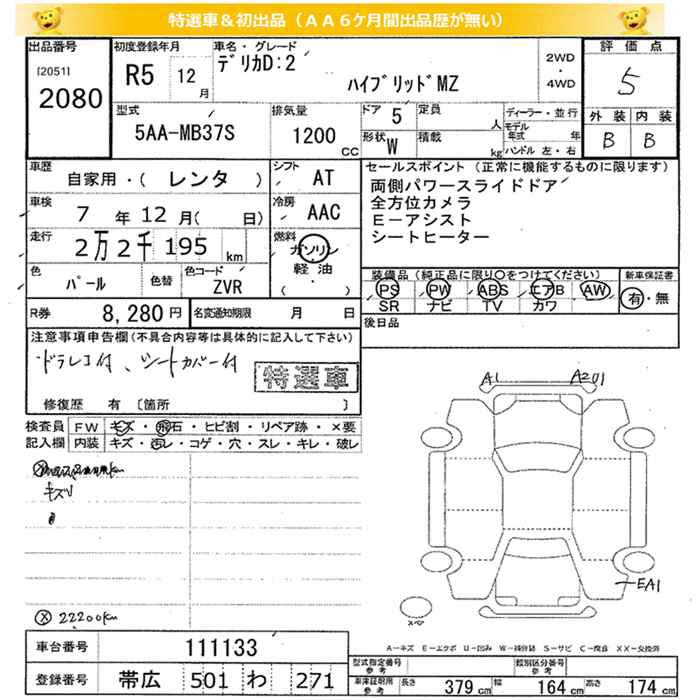 特選車＆初出品（ＡＡ６ケ月間出品歴が無い）
出品番号
[2051]
2080
初度登録年月
R5 12 月
車名・グレード
デリカD:2
ハイブリッドMZ
2WD
・
4WD
評価点
5
外装 内装
B B
型式
5AA-MB37S
排気量
1200 CC
ドア 5
形状 W
定員 人
積載 kg
ディーラー・並行
モデル年式 年式
ハンドル 左・右
車歴
自家用・( レンタ )
シフト AT
車検 7 年 12 月( 日)
冷房 AAC
走行 2万2千195 km
燃料 ガソリン
軽油
( )
色 パール
色替
色コード ZVR
R券 8,280円
名変通知期限 月 日
セールスポイント（正常に機能するものに限ります）
両側パワースライドドア
全方位カメラ
E－アシスト
シートヒーター
装備品（純正品に限り○をつけてください）
PS PW ABS エアB AW
SR ナビ TV カワ
新車保証書
有・無
後日品
注意事項申告欄(不具合内容等は具体的に記入して下さい)
ドラレコ付、シートカバー付
特選車
修復歴 有 [箇所 ]
検査員記入欄
FW キズ・飛石・ヒビ割・リペア跡・×要
内装 キズ・汚レ・コゲ・穴・スレ・キレ・破レ
キズ
22200km
A1 A2U1
EA1
スペ
A－キズ E－エクボ U－凹み W－補修跡 S－サビ C－腐食 XX－交換済
車台番号 111133
登録番号 帯広 501 わ 271
型式指定番号 参考
類別区分番号 参考
車庫証明用 参考 長さ 379cm 幅 164cm 高さ 174cm